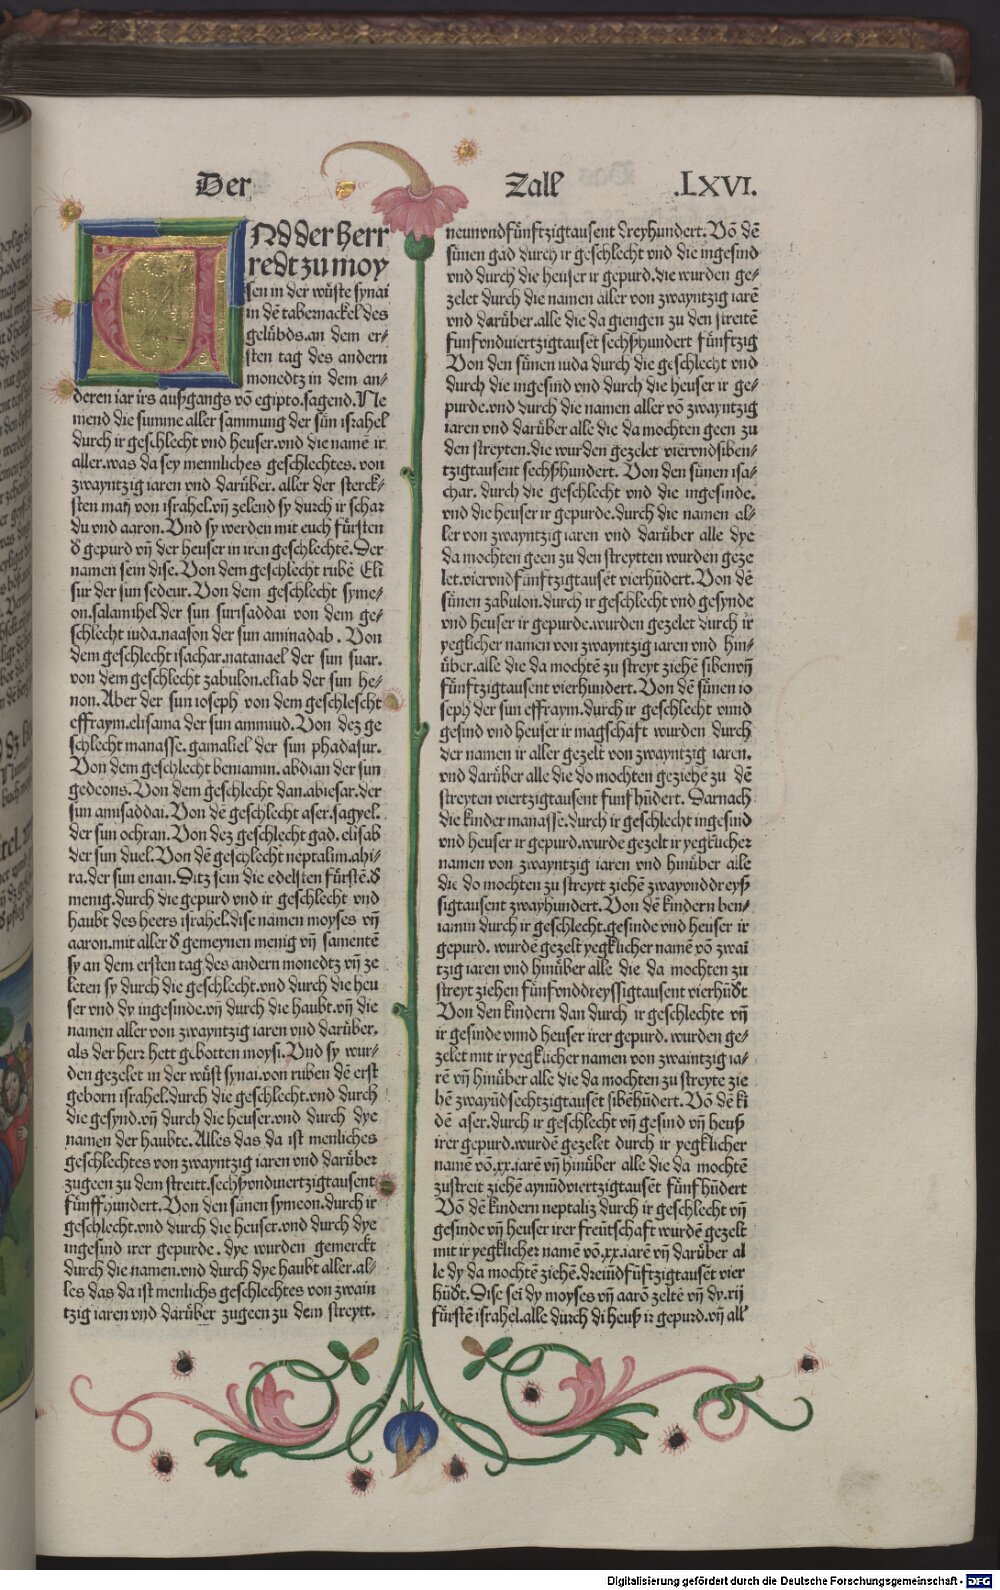 Der Zall LXVI.
VNd der herr
redt zu moy
sen in der wůste synai
in dē tabernackel des
gelübds.an dem er⸗
sten tag des andern
monedtz in dem an⸗
deren iar irs außgangs vō egipto.sagend.Ne
mend die summe aller sammung der sün israhel
durch ir geschlecht vnd heuser.vnd die namē ir
aller.was da sey mennliches geschlechtes. von
zwayntzig iaren vnd darüber. aller der sterck⸗
sten man̄ von israhel.vn̄ zelend sy durch ir schar
du vnd aaron. Vnd sy werden mit euch fürsten
d̕ gepurd vn̄ der heuser in iren geschlechtē. Der
namen sein dise. Von dem geschlecht rubē Eli
sur der sun sedeur. Von dem geschlecht syme⸗
on.salamihel der sun surisaddai von dem ge⸗
schlecht iuda.naason der sun aminadab. Von
dem geschlecht isachar.natanael der sun suar.
von dem geschlecht zabulon.eliab der sun he⸗
non. Aber der sun ioseph von dem geschlescht
effraym.elisama der sun ammiud. Von dez ge
schlecht manasse. gamaliel der sun phadasur.
Von dem geschlecht beniamin. abdian der sun
gedeons. Von dem geschlecht dan.abiesar.der
sun amisaddai. Von dē geschlecht aser.sagyel.
der sun ochran. Von dez geschlecht gad. elisab
der sun duel. Von dē geschlecht neptalim.ahi⸗
ra.der sun enan. Ditz sein die edelsten fürstē.d̕
menig.durch die gepurd vnd ir geschlecht vnd
haubt des heers israhel.dise namen moyses vn̄
aaron.mit aller d̕ gemeynen menig vn̄ samentē
sy an dem ersten tag des andern monedtz vn̄ ze
leten sy durch die geschlecht.vnd durch die heu
ser vnd dy ingesinde.vn̄ durch die haubt.vn̄ die
namen aller von zwayntzig iaren vnd darüber.
als der herr hett gebotten moysi. Vnd sy wur⸗
den gezelet in der wüst synai.von ruben dē erst
geborn israhel.durch die geschlecht.vnd durch
die gesynd.vn̄ durch die heuser.vnd durch dye
namen der haubte. Alles das da ist menliches
geschlechtes von zwayntzig iaren vnd darüber
zugeen zu dem streitt.sechßvndviertzigtausent
fünffhundert. Von den sünen symeon.durch ir
geschlecht.vnd durch die heuser.vnd durch dye
ingesind irer gepurde. dye wurden gemerckt
durch die namen.vnd durch dye haubt aller.al⸗
les das da ist menlichs geschlechtes von zwain
tzig iaren vnd darüber zugeen zu dem streytt.
neunvndfünftzigtausent dreyhundert. Vō dē
sünen gad durch ir geschlecht vnd die ingesind
vnd durch die heuser ir gepurd.die wurden ge⸗
zelet durch die namen aller von zwayntzig iarē
vnd darüber.alle die da giengen zu den streitē
funfvndviertzigtausēt sechßhundert fünftzig
Von den sünen iuda durch die geschlecht vnd
durch die ingesind vnd durch die heuser ir ge⸗
purde.vnd durch die namen aller vō zwayntzig
iaren vnd darüber alle die da mochten geen zu
den streyten.die wurden gezelet viervndsiben⸗
tzigtausent sechßhundert. Von den sünen isa⸗
char. durch die geschlecht vnd die ingesinde.
vnd die heuser ir gepurde.durch die namen al⸗
ler von zwayntzig iaren vnd darüber alle dye
da mochten geen zu den streytten wurden geze
let.viervndfünftzigtausēt vierhūdert. Von dē
sünen zabulon.durch ir geschlecht vnd gesynde
vnd heuser ir gepurde.wurden gezelet durch ir
yeglicher namen von zwayntzig iaren vnd hin⸗
über.alle die da mochtē zu streyt ziehē sibenvn̄
fünftzigtausent vierhundert. Von dē sünen io
seph der sun effraym.durch ir geschlecht vnnd
gesind vnd heuser ir magschaft wurden durch
der namen ir aller gezelt von zwayntzig iaren.
vnd darüber alle die do mochten geziehē zu dē
streyten viertzigtausent funf hūdert. Darnach
die kinder manasse.durch ir geschlecht ingesind
vnd heuser ir gepurd.wurde gezelt ir yegklicher
namen von zwayntzig iaren vnd hinüber alle
die do mochten zu streytt ziehē zwayvnddreyß
sigtausent zwayhundert. Von dē kindern ben⸗
iamin durch ir geschlecht.gesinde vnd heuser ir
gepurd. wurdē gezelt yegklicher namē vō zwai
tzig iaren vnd hinüber alle die da mochten zu
streyt ziehen fünfvnddreyssigtausent vierhūd̕t
Von den kindern dan durch ir geschlechte vn̄
ir gesinde vnnd heuser irer gepurd. wurden ge⸗
zelet mit ir yegklicher namen von zwaintzig ia⸗
rē vn̄ hinüber alle die da mochten zu streyte zie
hē zwayūdsechtzigtausēt sibēhūdert. Vō dē kī
dē aser.durch ir geschlecht vn̄ gesind vn̄ heuß
irer gepurd.wurdē gezelet durch ir yegklicher
namē vō.xx.iarē vn̄ hinüber alle die da mochtē
zustreit ziehē aynūdviertzigtausēt fünf hūdert
Vō dē kindern neptaliz durch ir geschlecht vn̄
gesinde vn̄ heuser irer freütschaft wurdē gezelt
mit ir yegklicher namē vō.xx.iarē vn̄ darüber al
le dy da mochtē ziehē.dreiūdfüftzigtausēt vier
hūd̕t. Dise sei͂ dy moyses vn̄ aarō zeltē vn̄ dy.xij
fürstē israhel.alle durch di heuß ir gepurd.vn̄ all̕
Digitalisierung gefördert durch die Deutsche Forschungsgemeinschaft - DFG